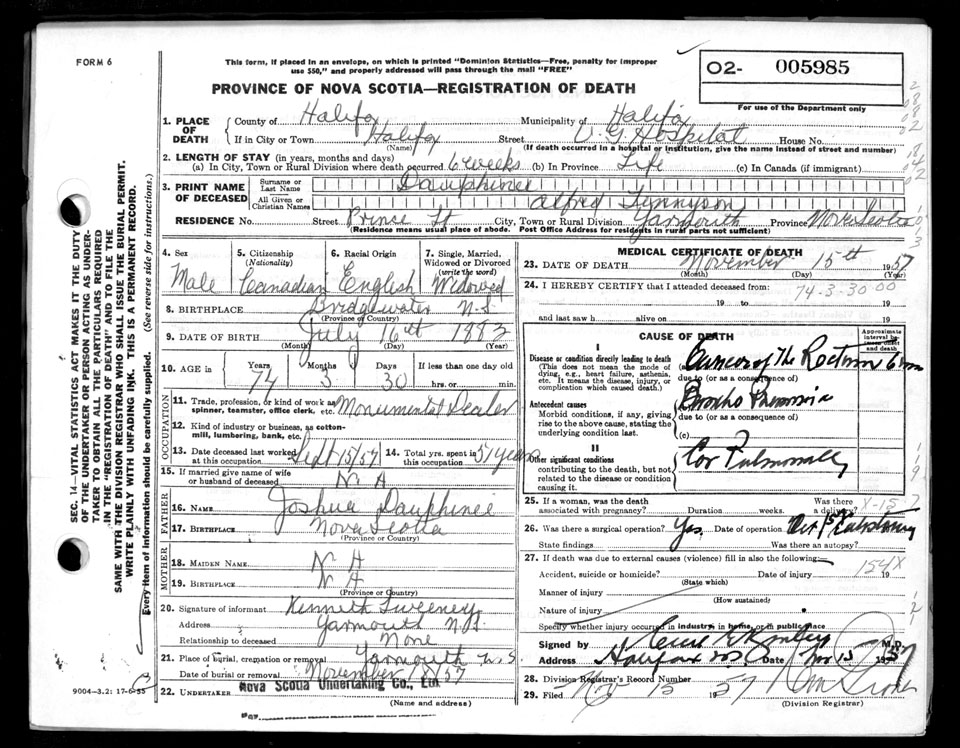 FORM 6
This form, if placed in an envelope, on which is printed "Dominion Statistics—Free, penalty for improper
use $50," and properly addressed will pass through the mail "FREE"
PROVINCE OF NOVA SCOTIA—REGISTRATION OF DEATH
O2- 005985
For use of the Department only
1. PLACE OF DEATH
County of Halifax Municipality of Halifax
If in City or Town Halifax Street V. G. Hospital House No.
(Name) (If death occurred in a hospital or institution, give the name instead of street and number)
2. LENGTH OF STAY (in years, months and days)
(a) In City, Town or Rural Division where death occurred 6 weeks (b) In Province Life (c) In Canada (if immigrant)
3. PRINT NAME OF DECEASED
Surname or Last Name Dauphinee
All Given or Christian Names Alfred Tennyson
RESIDENCE No. Street Prince St City, Town or Rural Division Yarmouth Province Nova Scotia
(Residence means usual place of abode. Post Office Address for residents in rural parts not sufficient)
4. Sex Male
5. Citizenship (Nationality) Canadian
6. Racial Origin English
7. Single, Married, Widowed or Divorced (write the word) Widowed
8. BIRTHPLACE Bridgewater N.S
(Province or Country)
9. DATE OF BIRTH July 16th 1883
(Month) (Day) (Year)
10. AGE in Years 74 Months 3 Days 30 If less than one day
hrs. or min.
OCCUPATION
11. Trade, profession, or kind of work as spinner, teamster, office clerk, etc. Monumental Dealer
12. Kind of industry or business, as cotton-mill, lumbering, bank, etc.
13. Date deceased last worked at this occupation Sept 15/57
14. Total yrs. spent in this occupation 51 years
15. If married give name of wife or husband of deceased N A
FATHER
16. Name Joshua Dauphinee
17. Birthplace Nova Scotia
(Province or Country)
MOTHER
18. MAIDEN NAME N A
19. BIRTHPLACE N A
(Province or Country)
20. Signature of informant Kenneth Sweeney
Address Yarmouth N.S.
Relationship to deceased None
21. Place of burial, cremation or removal Yarmouth N.S
Date of burial or removal November /57
22. UNDERTAKER Nova Scotia Undertaking Co., Ltd.
(Name and address)
9004—3.2: 17-6-55
SEC. 14—VITAL STATISTICS ACT MAKES IT THE DUTY
OF THE UNDERTAKER OR PERSON ACTING AS UNDER-
TAKER TO OBTAIN ALL THE PARTICULARS REQUIRED
IN THE "REGISTRATION OF DEATH" AND TO FILE THE
SAME WITH THE DIVISION REGISTRAR WHO SHALL ISSUE THE BURIAL PERMIT.
WRITE PLAINLY WITH UNFADING INK. THIS IS A PERMANENT RECORD.
Every item of information should be carefully supplied. (See reverse side for instructions.)
MEDICAL CERTIFICATE OF DEATH
23. DATE OF DEATH November 15th 1957
(Month) (Day) (Year)
24. I HEREBY CERTIFY that I attended deceased from:
74-3-30 00
19 to 19
and last saw h alive on 19
CAUSE OF DEATH
Approximate interval between onset and death
I
Disease or condition directly leading to death
(This does not mean the mode of dying, e.g., heart failure, asthenia, etc. It means the disease, injury, or complication which caused death.)
(a) Cancer of the Rectum 6 mo
due to (or as a consequence of)
Antecedent causes
Morbid conditions, if any, giving rise to the above cause, stating the underlying condition last.
Broncho Pneumonia
due to (or as a consequence of)
(c)
II
Other significant conditions
contributing to the death, but not related to the disease or condition causing it.
Cor Pulmonale
25. If a woman, was the death associated with pregnancy? Duration weeks. Was there a delivery?
26. Was there a surgical operation? Yes. Date of operation Oct
State findings Was there an autopsy?
27. If death was due to external causes (violence) fill in also the following:
154X
Accident, suicide or homicide? Date of injury 19
(State which)
Manner of injury
(How sustained)
Nature of injury
Specify whether injury occurred in industry, in home, or in public place
Signed by M.D.
Address Halifax NS Date Nov 15 1957
28. Division Registrar's Record Number
29. Filed Nov 15 1957
(Division Registrar)